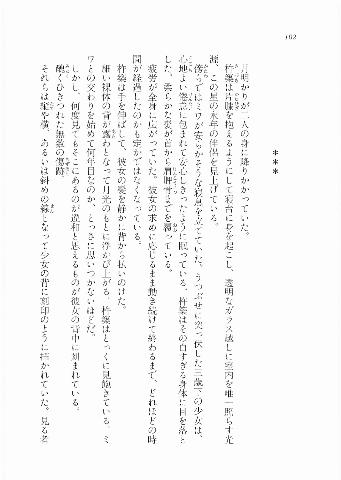 102
***
月明かりが二人の身に降りかかっていた。
杵築は片膝を抱えるようにして寝台に身を起こし、透明なガラス越しに室内を唯一照らす光
源、この星の永年の伴侶を見上げている。
傍らではミワが安らかそうな寝息を立てていた。うつぶせに突っ伏した三歳下の少女は、
心地よい倦怠に包まれて安心しきったように眠っている。杵築はその白すぎる身体に目を落と
した。柔らかな髪が首から肩胛骨までを覆っている。
疲労が全身に広がっていた。彼女の求めに応じるまま動き続けて終わるまで、どれほどの時
間が経過したのかも定かではなくなっている。
杵築は手を伸ばして、彼女の髪を静かに背から払いのけた。
細い裸体の背が露わとなって月光のもとに浮かび上がる。杵築はとっくに見飽きている。ミ
ワとの交わりを始めて何年目なのか、とっさに思いつかないほどだ。
しかし、何度見てもそこにあるのが違和と思えるものが彼女の背中に刻まれている。
醜くひきつれた無数の傷跡。
それらは縦や横、あるいは斜めの線となって少女の背に刻印のように描かれていた。見る者